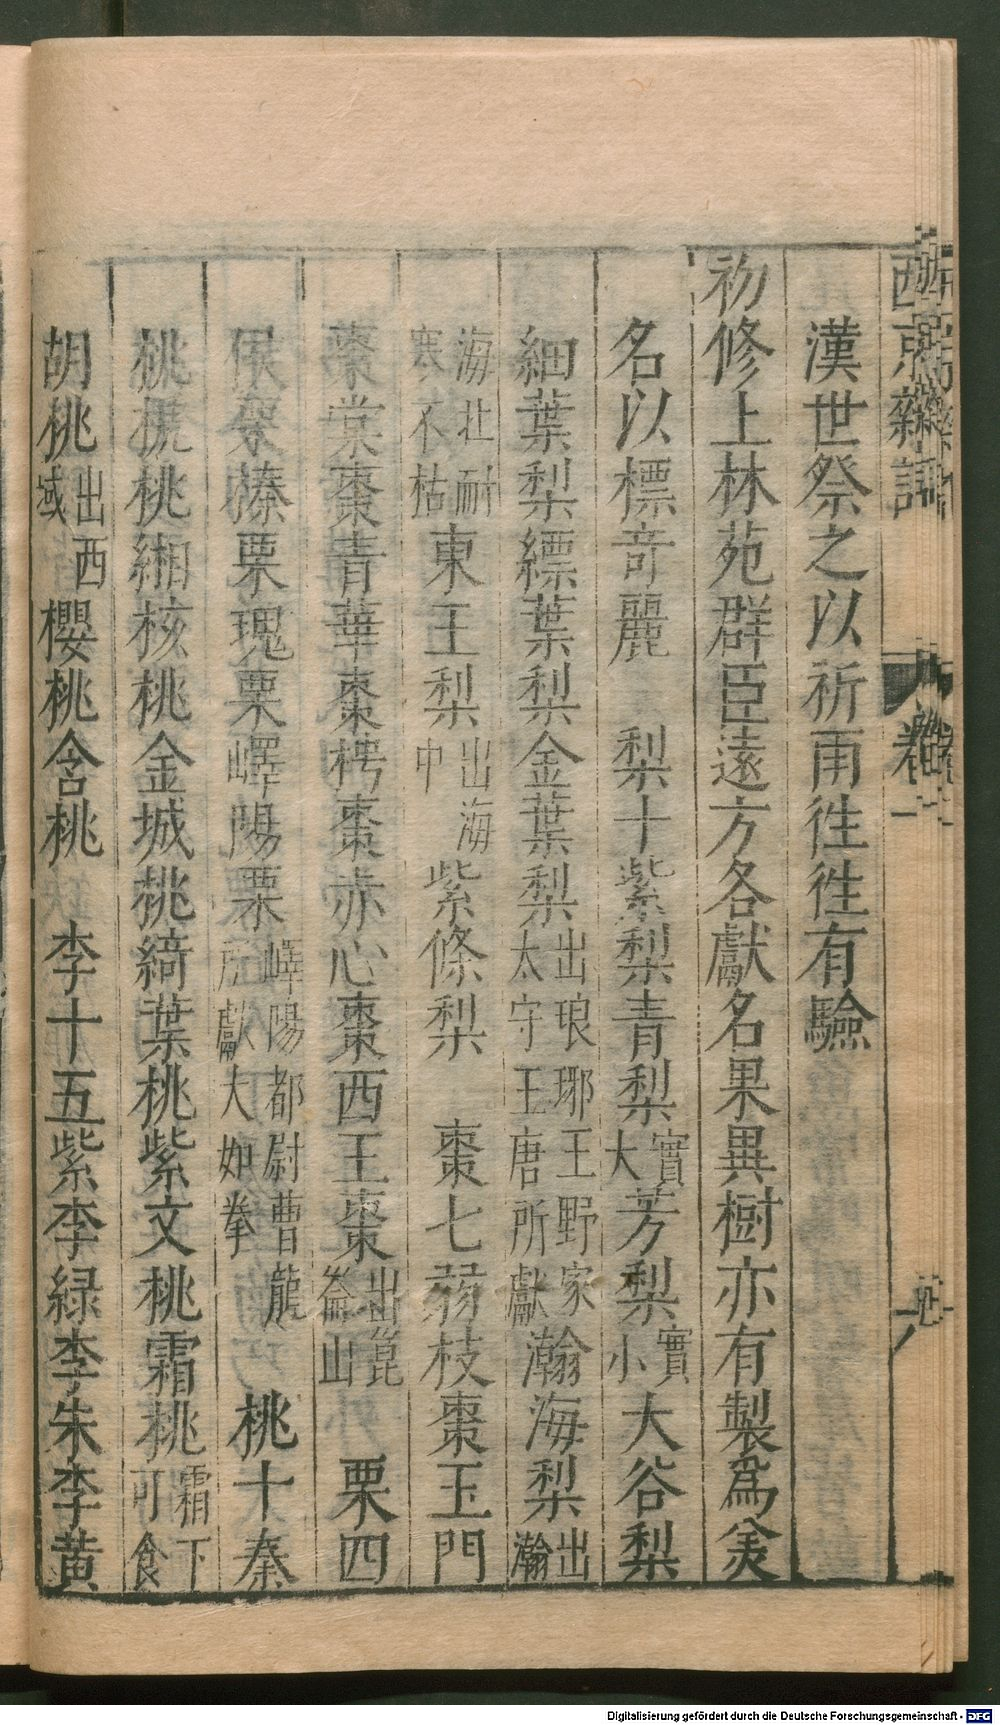 漢世祭之以祈雨徃徃有驗
初修上林苑群臣遠方各獻名果異樹亦有製爲美
名以標奇麗　梨十紫梨青梨實大芳梨實小大谷梨
細葉梨縹葉梨金葉梨出琅琊王野家太守王唐所獻瀚海梨出瀚
海北耐寒不枯東王梨出海中紫條梨　棗七弱枝棗玉門
棗棠棗青華棗梬棗赤心棗西王棗出崑崙山　栗四
侯栗榛栗瑰栗嶧陽栗嶧陽都尉曹龍所獻大如拳　桃十秦
桃榹桃緗核桃金城桃綺葉桃紫文桃霜桃霜下可食
胡桃出西域櫻桃含桃　李十五紫李緑李朱李黄
西京雜記
卷一
Digitalisierung gefördert durch die Deutsche Forschungsgemeinschaft - DFG